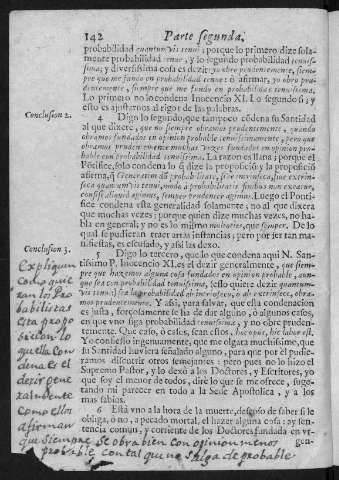 142 Parte segunda.
probabilidad quantumvis tenui; porque lo primero dize sola-
mente probabilidad tenue, y lo segundo probabilidad tenuis-
sima; y diversissima cosa es dezir: yo obro prudentemente, siem-
pre que me fundo en probabilidad tenue: ò afirmar, yo obro pru-
dentemente, siempre que me fundo en probabilidad tenuissima.
Lo primero no lo condena Inocencio XI. Lo segundo si; y
esto es ajustarnos al rigor de las palabras.
Conclusion 2.
4 Digo lo segundo, que tampoco cõdena su Santidad
al que dixere, que no siempre obramos prudentemente, quando
obramos fundados en opinion probable tenuissimamente; pero que
obramos prudentemente muchas vezes fundados en opinion pro-
bable con probabilidad tenuissima. La razon es llana; porque el
Põtifice, solo condena lo q̃ dize la proposiciõ y la proposiciõ
afirma, q̃ Generatim dũ probabilitate, sive intrinseca, sive extrin-
seca quantumvis tenui, modò à probabilitatis finibus non exeatur,
confisi aliquid agimus, semper prudenter agimus. Luego el Ponti-
fice condena esta generalidad solamente; no al que dixera
que muchas vezes; porque quien dize muchas vezes, no ha-
bla en general; y no es lo mismo multoties, que semper. De lo
qual se pudieran traer arias instancias; pero por ser tan ma-
nifiestas, es escusado, y assi las dexo.
Conclusion 3.
Digo lo tercero, que lo que condena aqui N. San-
tissimo P. Inocencio XI. es el dezir generalmente, que siempre
que hazemos alguna cosa fundados en opinion probable, aun-
que sea con probabilidad tenuissima, (esto quiere dezir quantum-
vis tenui) sea la probabilidad de intrinseco, ò de extrinseco, obra-
mos prudentemente. Y assi, para salvar, que esta condenacion
es justa, forçosamente se ha de dar alguno, ò algunos casos,
en que uno siga probabilidad tenuissima, y no obre pruden-
temente. Que caso, ò casos, sean ellos, hic opus, hic labor est.
Yo confiesso ingenuamente, que me olgara muchissimo, que
su Santidad huviera señalado alguno, para que por él pudie-
ramos discurrir otros semejantes; pero pues no lo hizo el
Supremo Pastor, y lo dexò à los Doctores, y Escritores, yo
que soy el menor de todos, dire lo que se me ofrece, suge-
tando mi parecer en todo à la Sede Apostolica, y à los
mas sabios.
6 Está uno à la hora de la muerte, deseoso de saber si le
obliga, ò no, à pecado mortal, el hazer alguna cosa; ay sen-
tencia comun, y corriente de los Doctores fundada en vr-
gen-
Expliquen
como quie
ran los Pro
babilistas
esta propo
sicion lo
que lla con
dena es el
dezir gene
ralmente
como ellos
afirman
que siempre se obra bien con opinion menos
probable con tal que no salga de probable